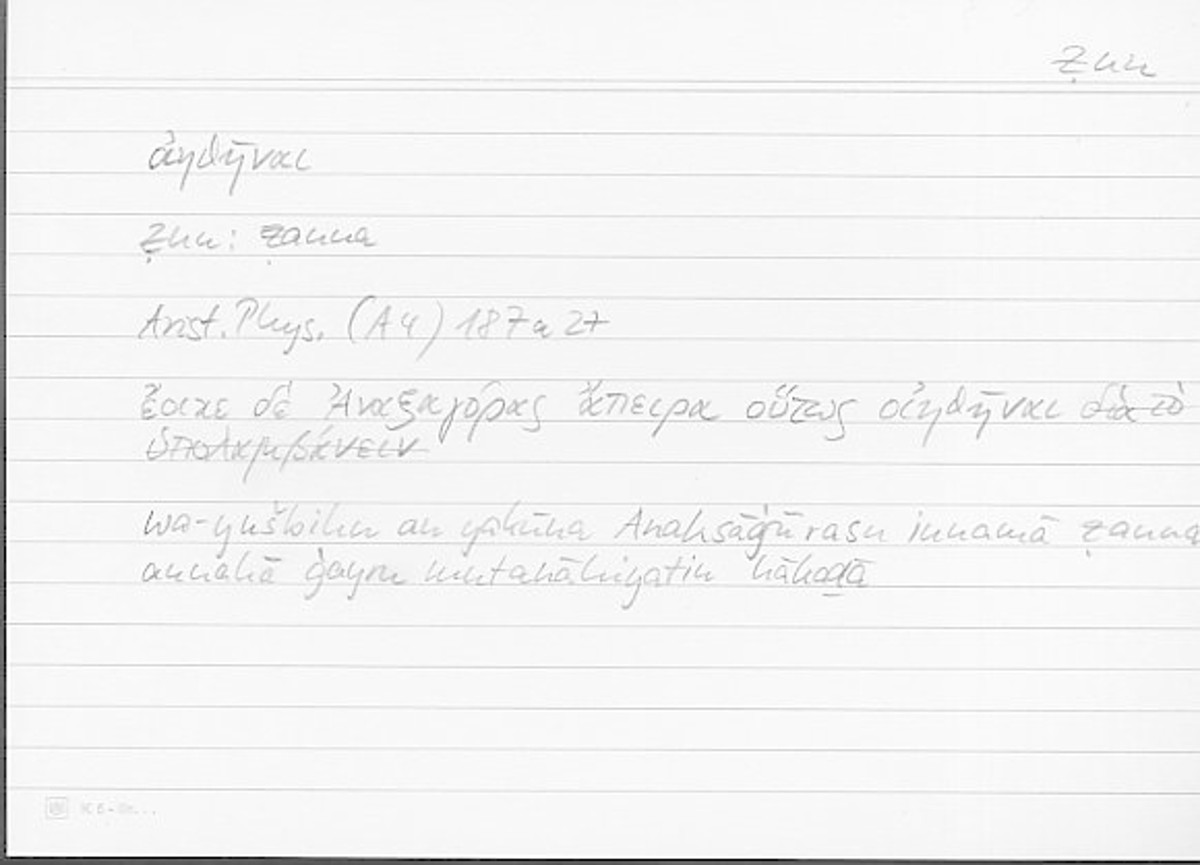 ẓnn
οἰηθῆναι
ẓnn: ẓanna
Arist. Phys. (A 4) 187 a 27
ἔοικε δὲ Ἀναξαγόρας ἄπειρα οὕτως οἰηθῆναι διὰ τὸ
ὑπολαμβάνειν
wa-yušbihu an yakūna Anaksāġūrasu innamā ẓanna
annahā ġayru mutanāhiyatin hākaḏā